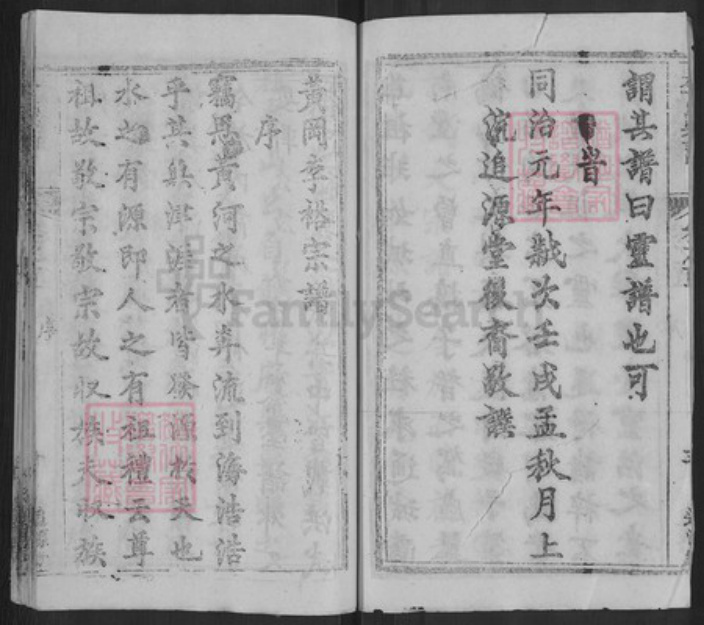 謂其譜曰靈譜也可
旹
同治元年歲次壬戌孟秋月上
流追源堂後裔敬譔
黃岡李裕宗譜
序
竊思黃河之水奔流到海浩浩
乎其與洋洋者皆發源於天也
水之有源即人之有祖禮云尊
祖故敬宗敬宗故收族夫收族
序
FamilySearch